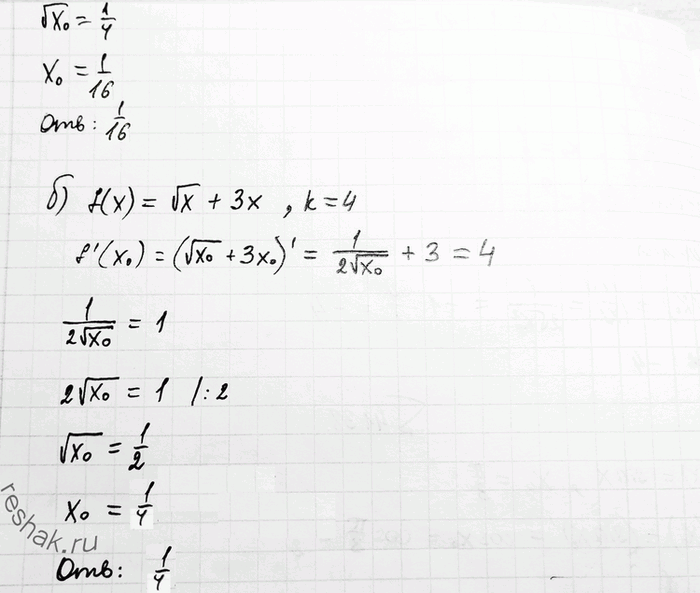 √x₀ = 1/4
x₀ = 1/16
Отв: 1/16
б) f(x) = √x + 3x , k = 4
f'(x₀) = (√x₀ + 3x₀)' = 1/(2√x₀) + 3 = 4
1/(2√x₀) = 1
2√x₀ = 1 /: 2
√x₀ = 1/2
x₀ = 1/4
Отв: 1/4
reshak.ru